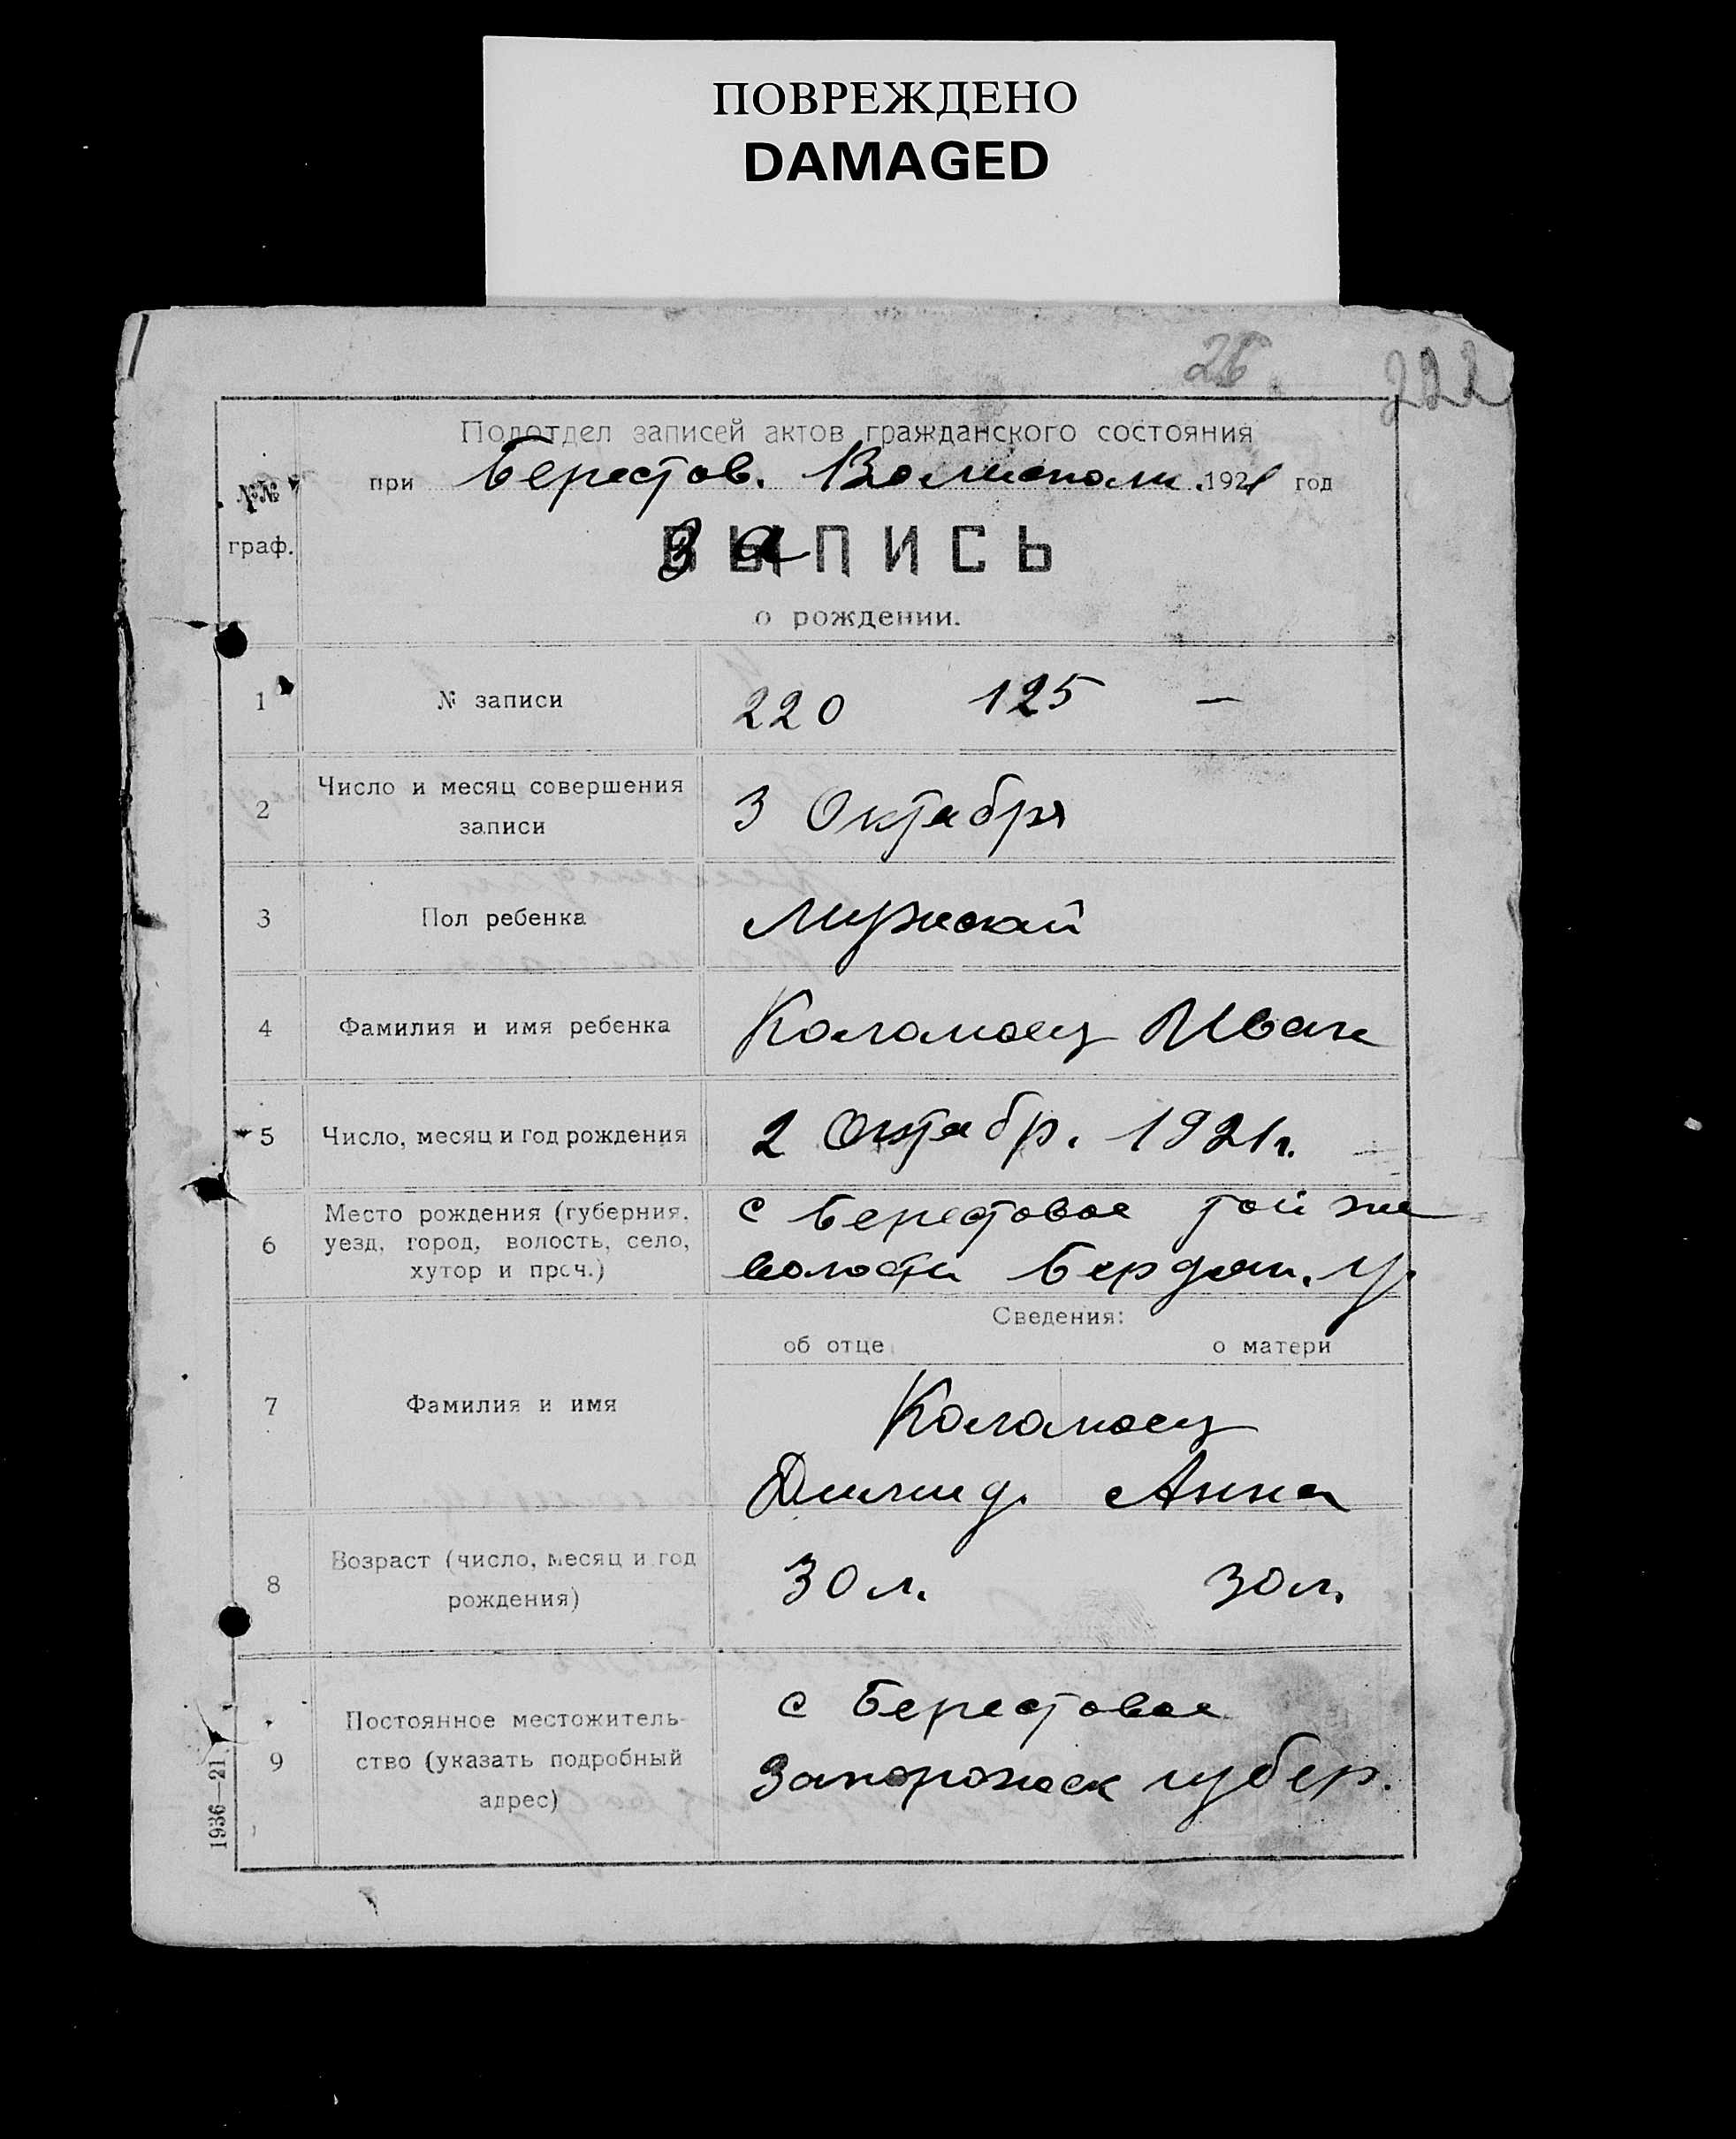 ПОВРЕЖДЕНО
DAMAGED
26
222
Подотдел записей актов гражданского состояния
при Берестов. Волисполк. 1921 год
№№
граф.
ЗаПИСЬ
о рождении.
1 № записи 220 125 —
2 Число и месяц совершения
записи
3 Октября
3 Пол ребенка Мужской
4 Фамилия и имя ребенка Коломоец Иван
5 Число, месяц и год рождения 2 Октябр. 1921 г.
6 Место рождения (губерния,
уезд, город, волость, село,
хутор и проч.)
с Берестовое той же
волости Бердян. У.
Сведения:
об отце о матери
7 Фамилия и имя
Коломоец
Анна
8 Возраст (число, месяц и год
рождения)
30 л. 30 л.
9 Постоянное местожитель-
ство (указать подробный
адрес)
с Берестовое
Запорожск губер.
1936—21